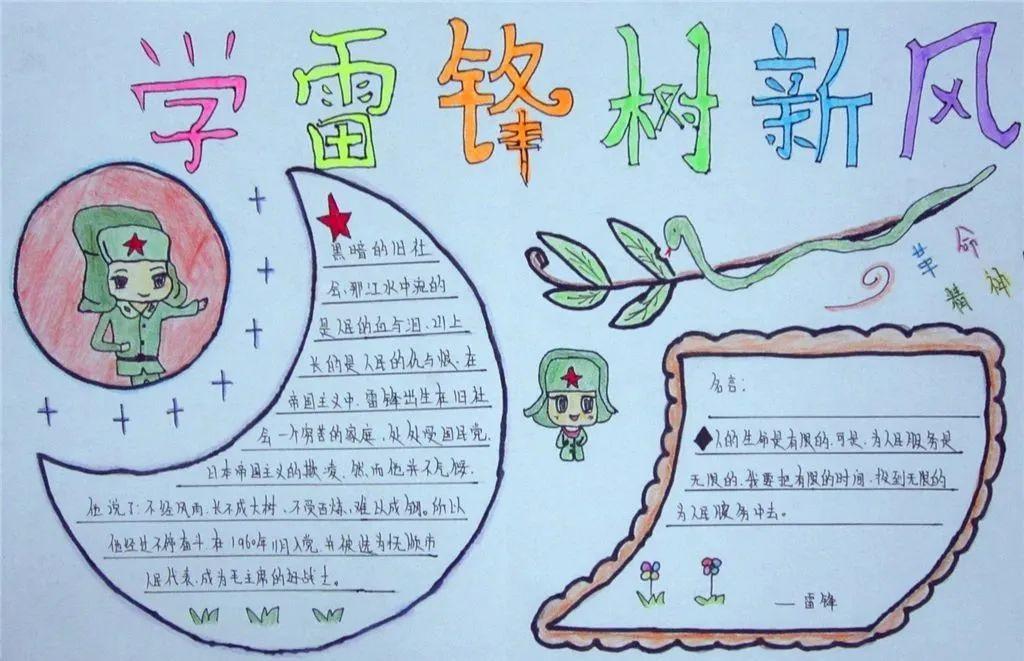 学雷锋树新风
黑暗的旧社
会,那江水中流的
是人民的血与泪,山上
长的是人民的仇与恨,在
帝国主义中,雷锋出生在旧社
会一个穷苦的家庭,处处受国民党,
日本帝国主义的欺凌,然而他并不气馁,
他说了:不经风雨,长不成大树,不受百炼,难以成钢。所以
他经过不停奋斗,在1960年11月入党,并被选为抚顺市
人民代表,成为毛主席的好战士。
革命
精神
名言:
◆人的生命是有限的,可是,为人民服务是
无限的,我要把有限的时间,投到无限的
为人民服务中去。
——雷锋